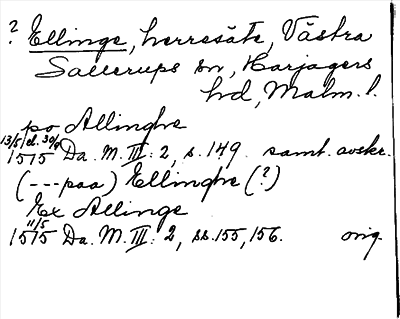 ? Ellinge, herresäte, Västra
Sallerups sn, Harjagers
hd, Malm. l.
po Allinghe
13/5 el. 30/9
1515 Da. M. III: 2, s. 149. samt. avskr.
(---paa) Ellinghe (?)
Ex Allinge
11/5
1515 Da. M. III: 2, ss. 155, 156. orig.